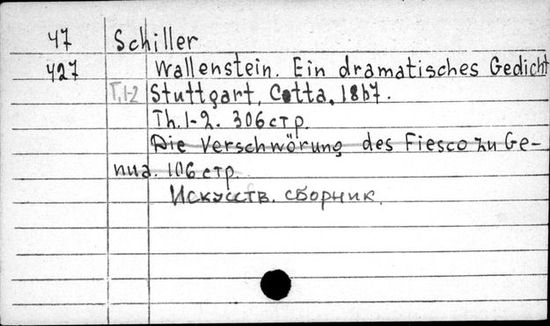 47 Schiller
427 Wallenstein. Ein dramatisches Gedicht
T.1-2 Stuttgart, Cotta, 1867.
Th.1-2. 306 стр.
Die Verschwörung des Fiesco zu Ge-
nua. 106 стр.
Искусств. сборник.